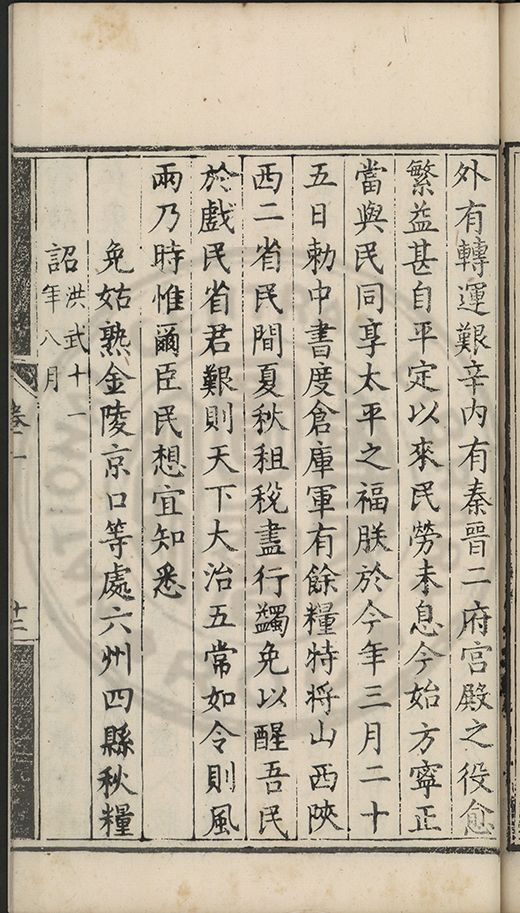 外有轉運艱辛內有秦晉二府宮殿之役愈
繁益甚自平定以來民勞未息今始方寧正
當與民同享太平之福朕於今年三月二十
五日勅中書度倉庫軍有餘糧特將山西陝
西二省民間夏秋租稅盡行蠲免以醒吾民
於戲民省君艱則天下大治五常如令則風
雨乃時惟爾臣民想宜知悉
免姑熟金陵京口等處六州四縣秋糧
詔洪武十一
年八月
卷二
十二